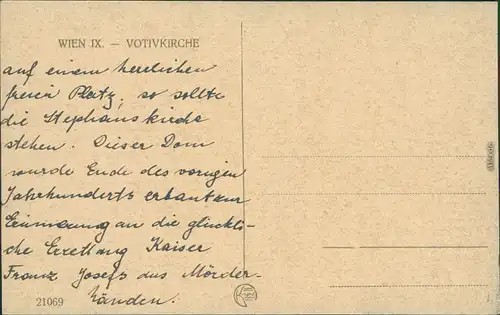 WIEN IX. — VOTIVKIRCHE
auf einem herrlichen
freien Platz, so sollte
die Stephanskirche
stehen. Dieser Dom
wurde Ende des vorigen
Jahrhunderts erbaut zur
Erinnerung an die glückli-
che Errettung Kaiser
Franz Josefs aus Mörder-
händen.
21069